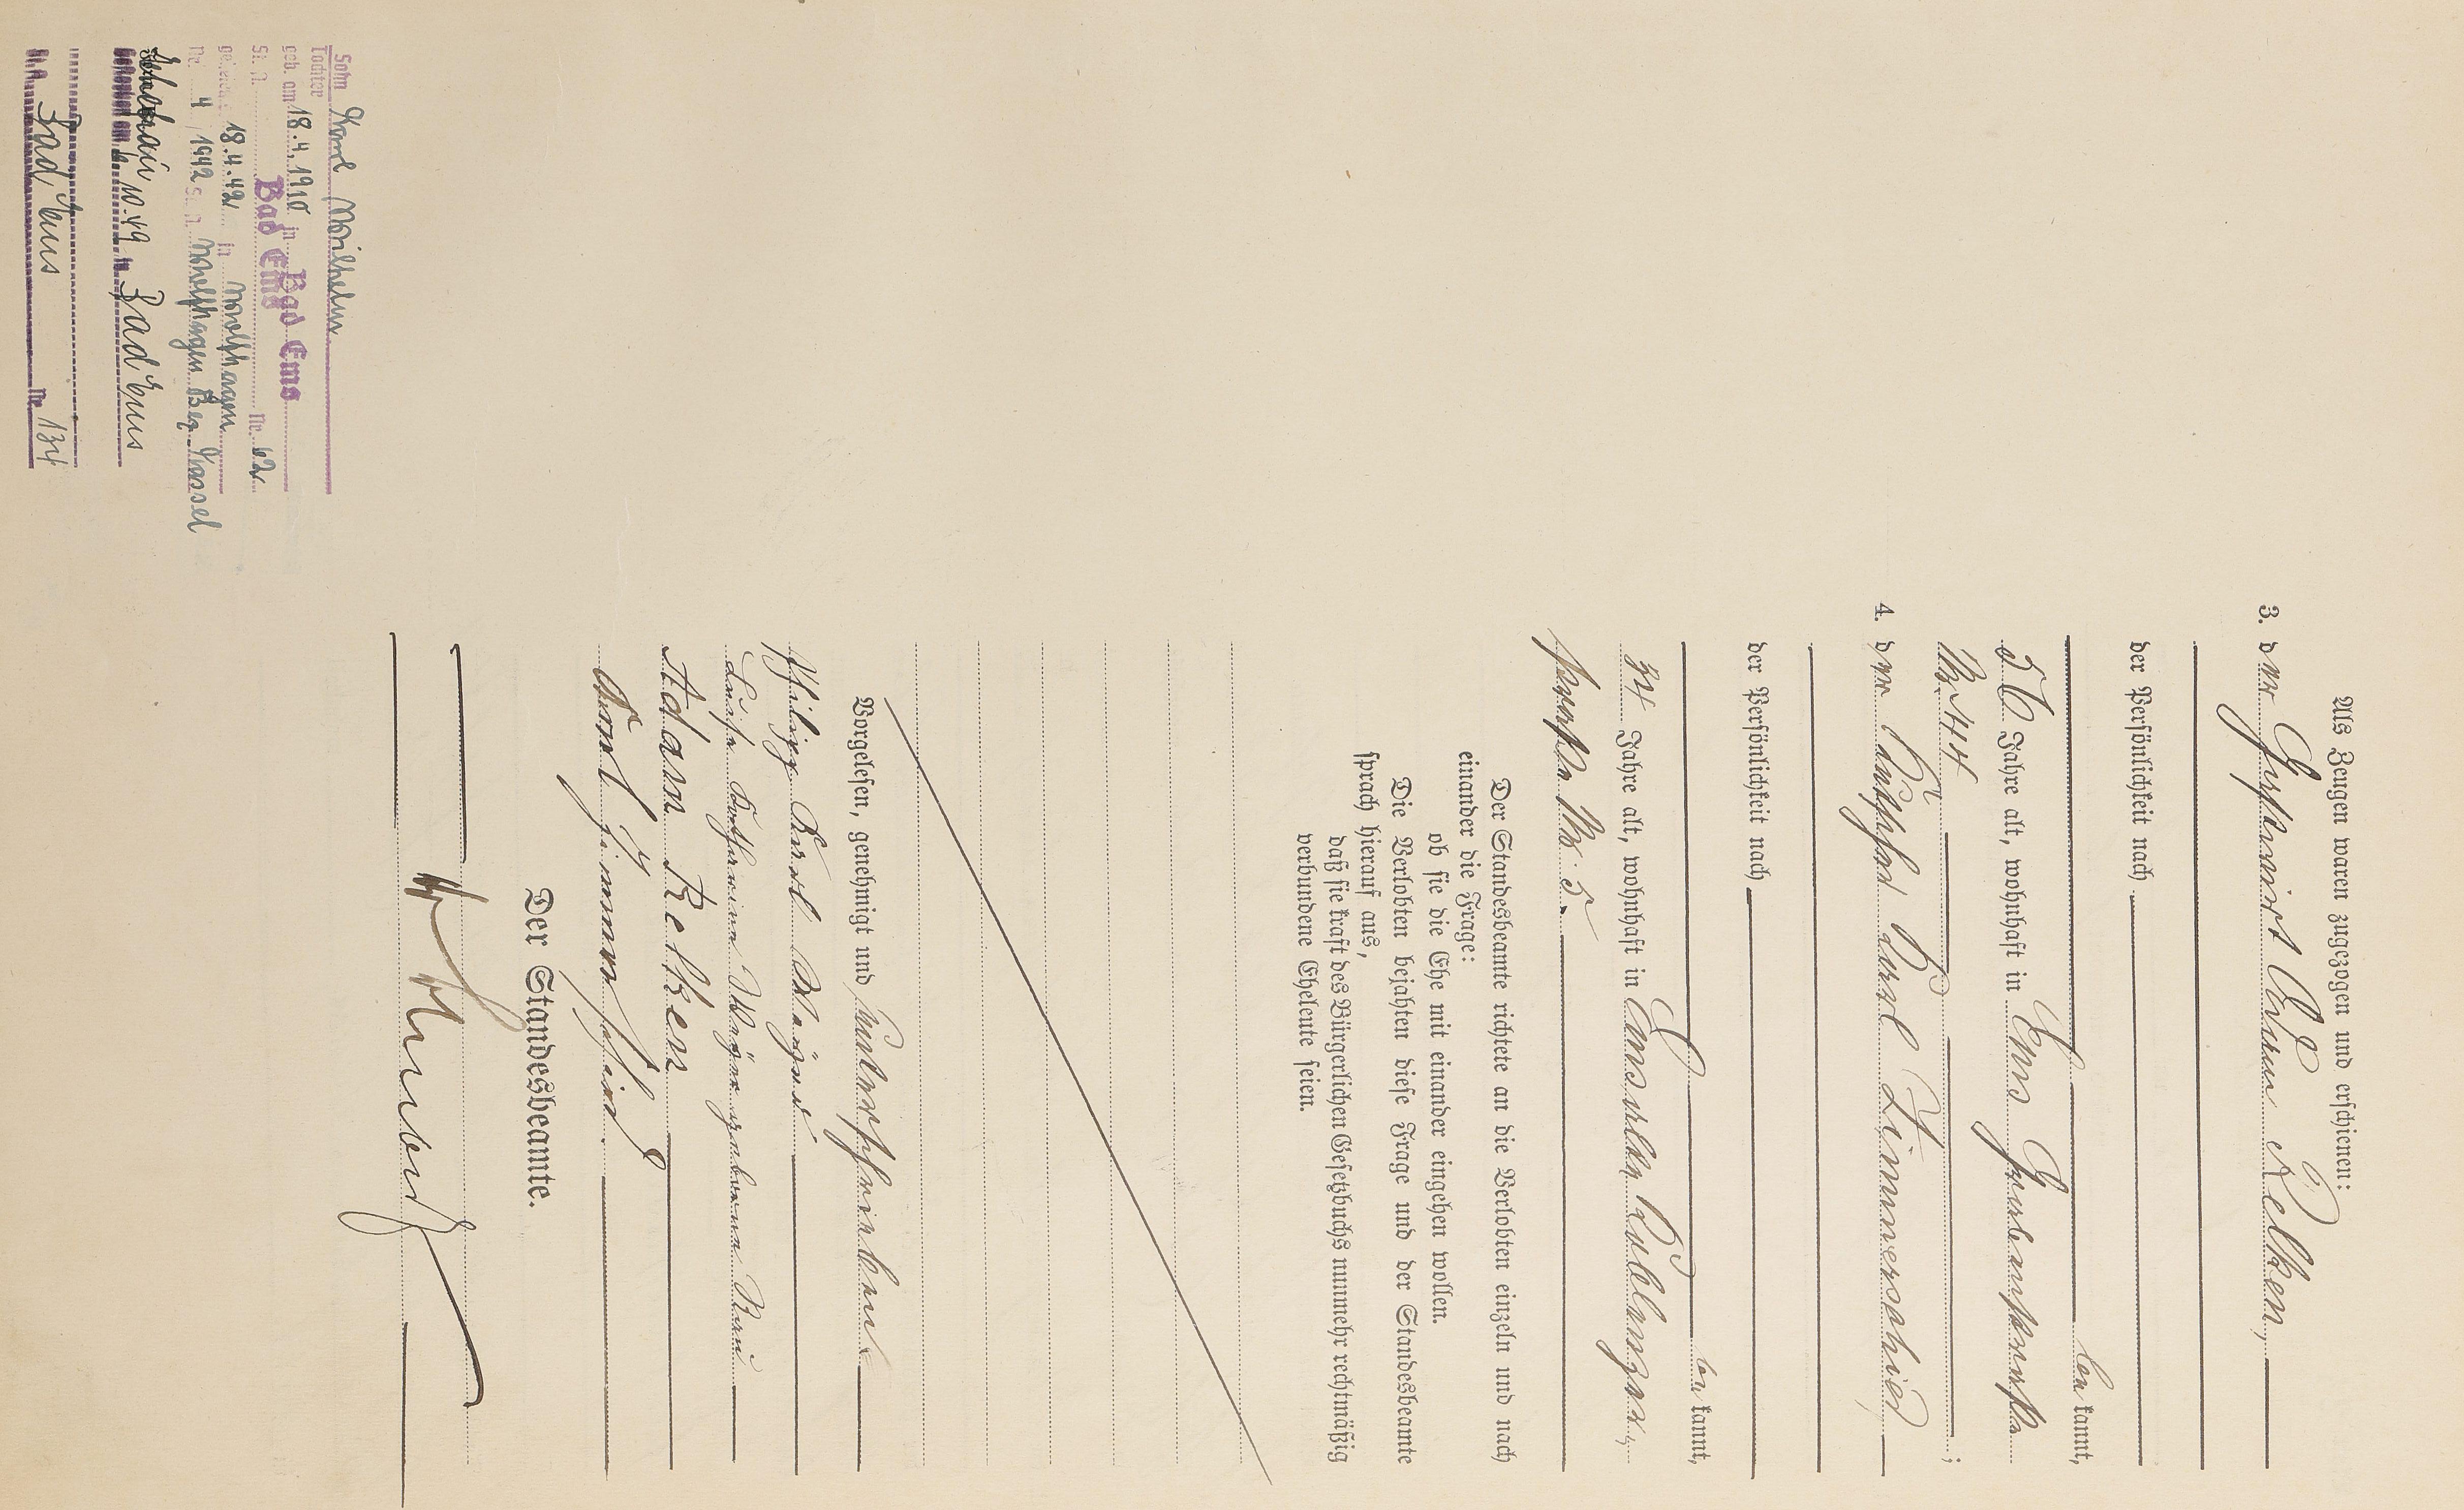 Als Zeugen waren zugezogen und erschienen:
3. der Gastwirt Adam Relken,
der Persönlichkeit nach
bekannt,
56 Jahre alt, wohnhaft in Ems Grabenstraße
No. 44;
4. der Küfer Karl Zimmerschied
der Persönlichkeit nach
bekannt,
34 Jahre alt, wohnhaft in Ems, alte Koblenzer-
straße No. 5.
Der Standesbeamte richtete an die Verlobten einzeln und nach
einander die Frage:
ob sie die Ehe mit einander eingehen wollen.
Die Verlobten bejahten diese Frage und der Standesbeamte
sprach hierauf aus,
daß sie kraft des Bürgerlichen Gesetzbuchs nunmehr rechtmäßig
verbundene Eheleute seien.
Vorgelesen, genehmigt und unterschrieben
Philipp Karl
Luise Katharina geborene
Adam Relken
Karl Zimmerschied
Der Standesbeamte.
Sohn Karl Wilhelm
Tochter
geb. am 18.4.1910 in Bad Ems
St. A. Bad Ems Nr. 62
18.4.42 in Wolfhagen
Nr. 4/1942 St. A. Wolfhagen Bez Kassel
10.49 in Bad Ems
St. A. Bad Ems Nr. 134